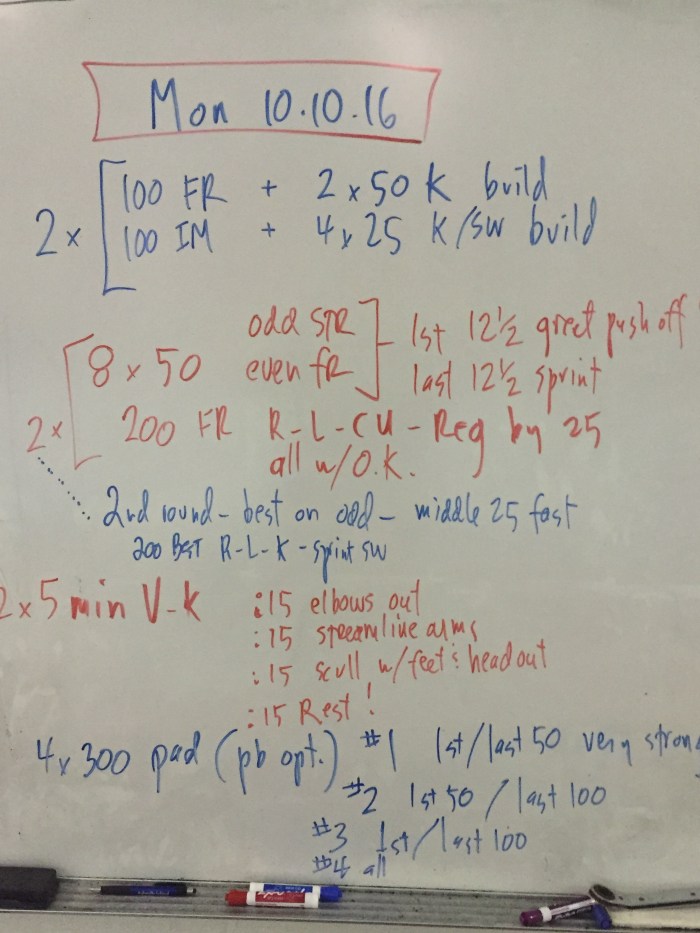 Mon 10.10.16
2 x [ 100 FR + 2 x 50 K build
100 IM + 4 x 25 K/SW build
2 x [ 8 x 50 odd STR ] 1st 12½ great push off
even FR ] last 12½ sprint
200 FR R-L-CU-Reg by 25
all w/O.K.
2nd round - best on odd - middle 25 fast
200 BEST R-L-K-sprint SW
2 x 5 min V-K :15 elbows out
:15 streamline arms
:15 scull w/feet & head out
:15 Rest!
4 x 300 pad (pb opt.) #1 1st/last 50 very strong
#2 1st 50 / last 100
#3 1st/last 100
#4 all